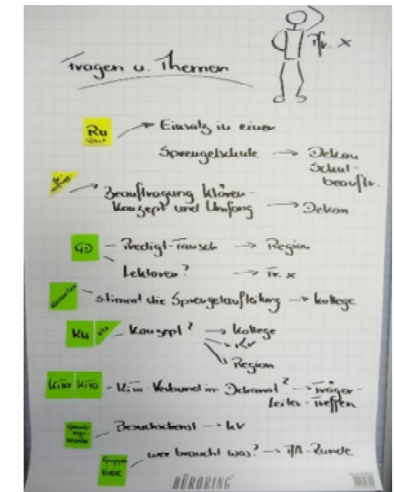 Fragen u. Themen
Pfr. x
RU
Einsatz in einer
Sprengelschule → Dekan
Schul-
beauftr.
Beauftragung klären -
Konzept und Umfang → Dekan
GD - Predigt-Tausch → Region
Lektoren? → Pfr. x
- stimmt die Sprengelaufteilung → Kollege
KU - Konzept? → Kollege
→ KV
→ Region
Kita Kita - Kita-Verbund im Dekanat? → Träger-
Leiter-Treffen
- Besuchsdienst → KV
wer braucht was? → MA-Runde
BÜRORING